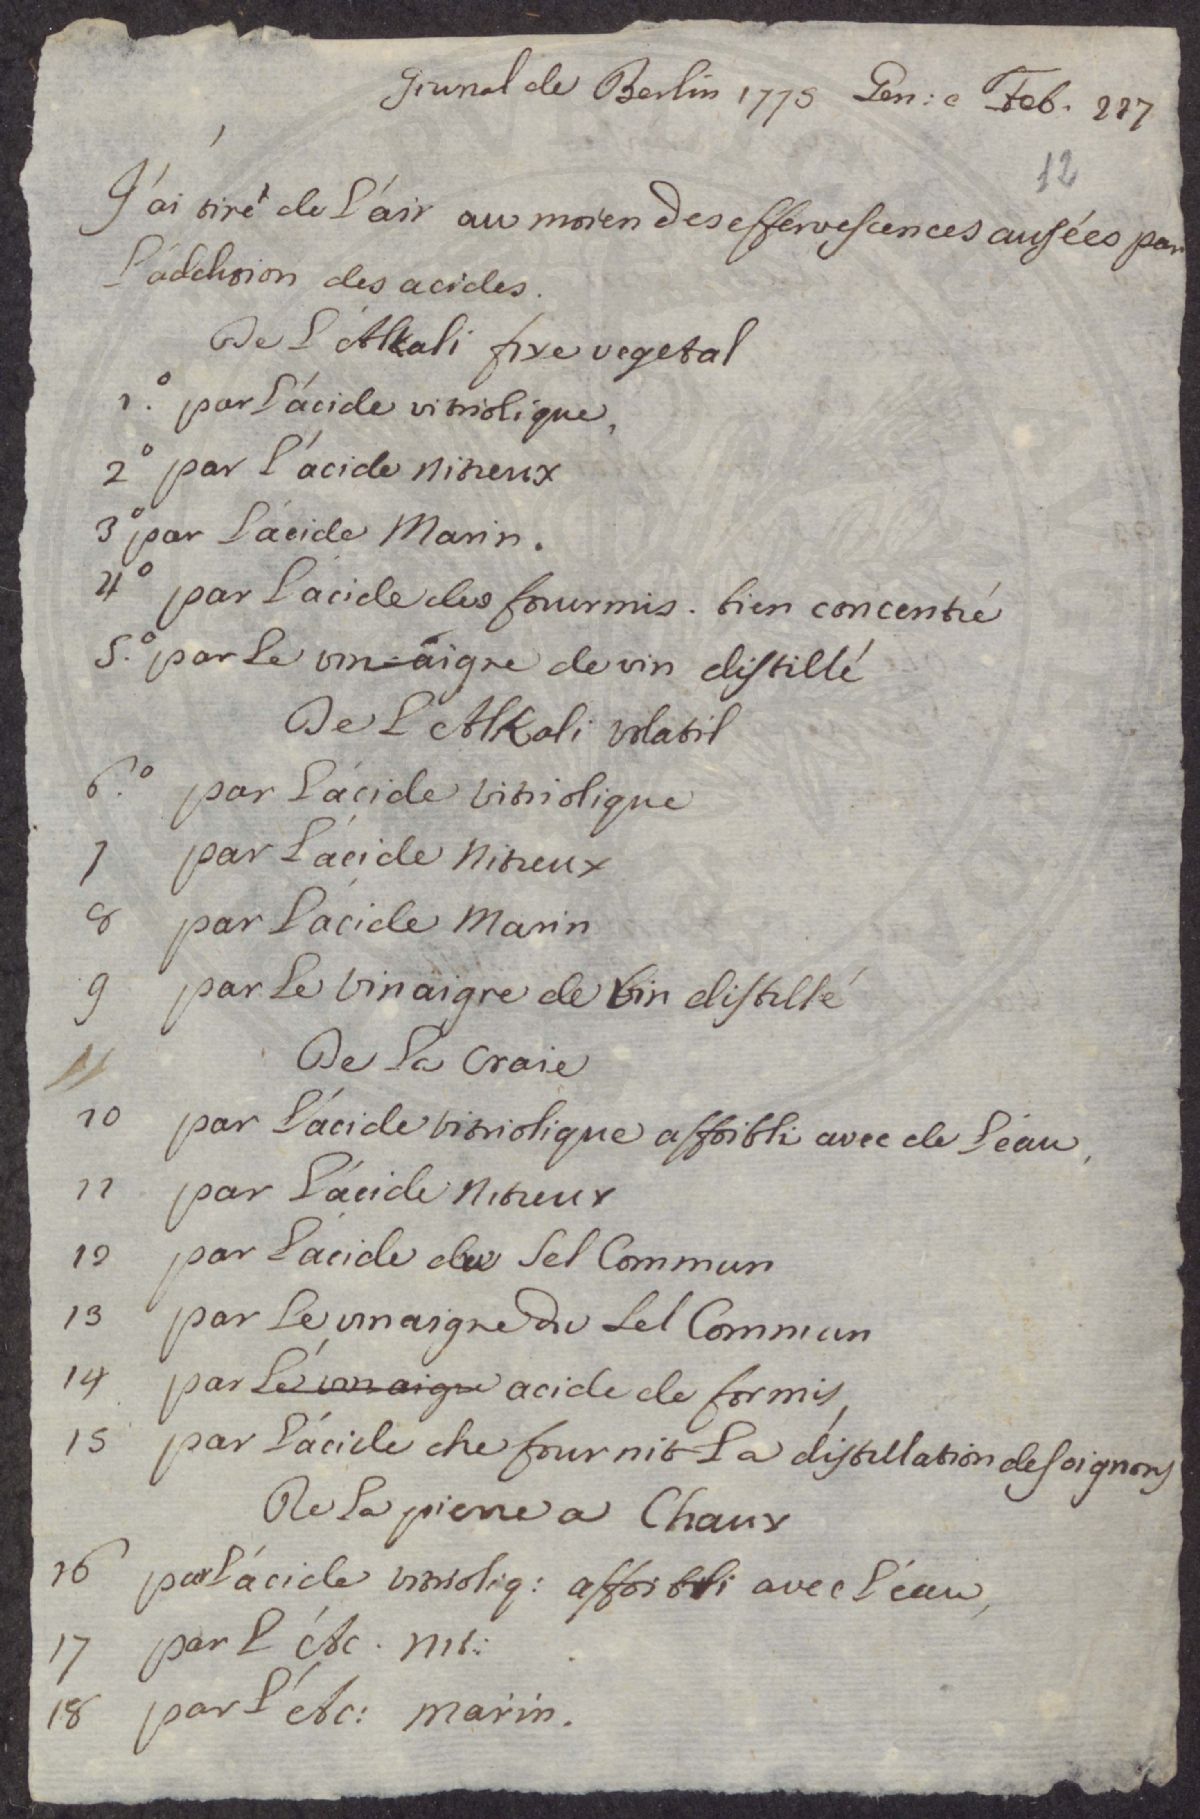 Giurnal de Berlin 1775 Gen: e Feb. 227
12
J'ai tiré de L'air au moien des effervescences ausées par
L'addition des acides.
De L'Alkali fixe vegetal
1.º par L'ácide vitriolique,
2º par L'ácide nitreux
3º par L'ácide Marin.
4º par L'acide des fourmis. bien concentré
5.º par Le vin-aigre de vin distillé
De L'Alkali volatil
6.º par L'ácide vitriolique
7 par L'ácide Nitreux
8 par L'ácide Marin
9 par Le Vinaigre de Vin distillé
De La Craie
10 par L'ácide vitriolique affoibli avec de L'eau,
11 par L'ácide Nitreux
12 par L'acide du Sel Commun
13 par Le vinaigre du Sel Commun
14 par Le vinaigre acide de formis,
15 par L'ácide che fournit La distillation des oignons
De La pierre a Chaux
16 par L'ácide vitrioliq: affoibli avec L'éau,
17 par L'Ac. nit:
18 par L'Ac: marin.